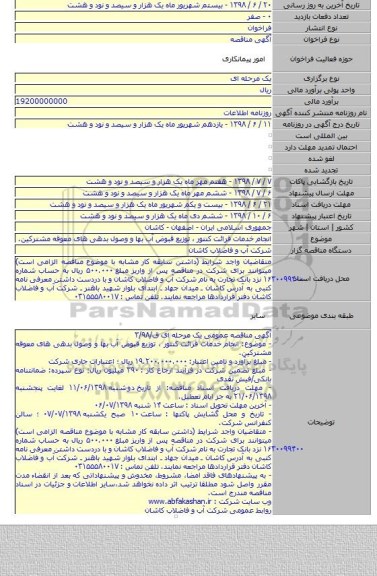 تاریخ آخرین به روز رسانی ۲۰ / ۶ / ۱۳۹۸ - بیستم شهریور ماه یک هزار و سیصد و نود و هشت
تعداد دفعات بازدید ۰ - صفر
نوع انتشار فراخوان
نوع فراخوان آگهی مناقصه
حوزه فعالیت فراخوان امور پیمانکاری
نوع برگزاری یک مرحله ای
واحد پولی برآورد مالی ریال
برآورد مالی 19200000000
نام روزنامه منتشر کننده آگهی روزنامه اطلاعات
تاریخ درج آگهی در روزنامه ۱۱ / ۶ / ۱۳۹۸ - یازدهم شهریور ماه یک هزار و سیصد و نود و هشت
بین المللی است
احتمال تمدید مهلت دارد
لغو شده
تجدید شده
تاریخ بازگشایی پاکات ۷ / ۷ / ۱۳۹۸ - هفتم مهر ماه یک هزار و سیصد و نود و هشت
مهلت ارسال پیشنهاد ۶ / ۷ / ۱۳۹۸ - ششم مهر ماه یک هزار و سیصد و نود و هشت
مهلت دریافت اسناد ۲۱ / ۶ / ۱۳۹۸ - بیست و یکم شهریور ماه یک هزار و سیصد و نود و هشت
تاریخ اعتبار پیشنهاد ۶ / ۱۰ / ۱۳۹۸ - ششم دی ماه یک هزار و سیصد و نود و هشت
کشور | استان | شهر جمهوری اسلامی ایران - اصفهان - کاشان
موضوع انجام خدمات قرائت کنتور ، توزیع قبوض آب بها و وصول بدهی های معوقه مشترکین.
دستگاه مناقصه گزار شرکت آب و فاضلاب کاشان
متقاضیان واجد شرایط (داشتن سابقه کار مشابه با موضوع مناقصه الزامی است)
میتوانند برای شرکت در مناقصه پس از واریز مبلغ ۵۰۰،۰۰۰ ریال به حساب شماره
محل دریافت اسناد نزد بانک تجارت به نام شرکت آب و فاضلاب کاشان و با دردست داشتن معرفی نامه
کتبی به آدرس کاشان ـ میدان جهاد ـ ابتدای بلوار شهید باهنر ـ شرکت آب و فاضلاب
کاشان دفتر قراردادها مراجعه نمایند. تلفن تماس : ۰۳۱۵۵۵۸۰۰۱۷
طبقه بندی موضوعی سایر
آگهی مناقصه عمومی یک مرحله ای ف/۲/۹۸
- موضوع: انجام خدمات قرائت کنتور ، توزیع قبوض آب بها و وصول بدهی های معوقه
مشترکین.
- مبلغ برآورد و تامین اعتبار: ۱۹،۲۰۰،۰۰۰،۰۰۰ ریال- اعتبارات جاری شرکت
- مبلغ تضمین شرکت در فرآیند ارجاع کار : ۳۹۰ میلیون ریال- نوع سپرده: ضمانتنامه
بانکی/فیش نقدی
- مهلت دریافت اسناد مناقصه: از تاریخ دوشنبه ۱۱/۰۶/۱۳۹۸ لغایت پنجشنبه
۲۱/۰۶/۱۳۹۸ به جز ایام تعطیل
- آخرین مهلت تحویل اسناد : ساعت ۱۴ شنبه ۰۶/۰۷/۱۳۹۸
- تاریخ و محل گشایش پاکتها : ساعت ۱۰ صبح یکشنبه ۰۷/۰۷/۱۳۹۸ ؛ سالن
کنفرانس شرکت.
- متقاضیان واجد شرایط (داشتن سابقه کار مشابه با موضوع مناقصه الزامی است)
میتوانند برای شرکت در مناقصه پس از واریز مبلغ ۵۰۰،۰۰۰ ریال به حساب شماره
توضیحات نزد بانک تجارت به نام شرکت آب و فاضلاب کاشان و با دردست داشتن معرفی نامه
کتبی به آدرس کاشان ـ میدان جهاد ـ ابتدای بلوار شهید باهنر ـ شرکت آب و فاضلاب
کاشان دفتر قراردادها مراجعه نمایند. تلفن تماس : ۰۳۱۵۵۵۸۰۰۱۷
- به پیشنهادهای فاقد امضا، مشروط، مخدوش و پیشنهاداتی که بعد از انقضاء مدت
مقرر واصل شود مطلقا ترتیب اثر داده نخواهد شد.سایر اطلاعات و جزئیات در اسناد
مناقصه مندرج است.
وب سایت شرکت : www.abfakashan.ir
روابط عمومی شرکت آب و فاضلاب کاشان